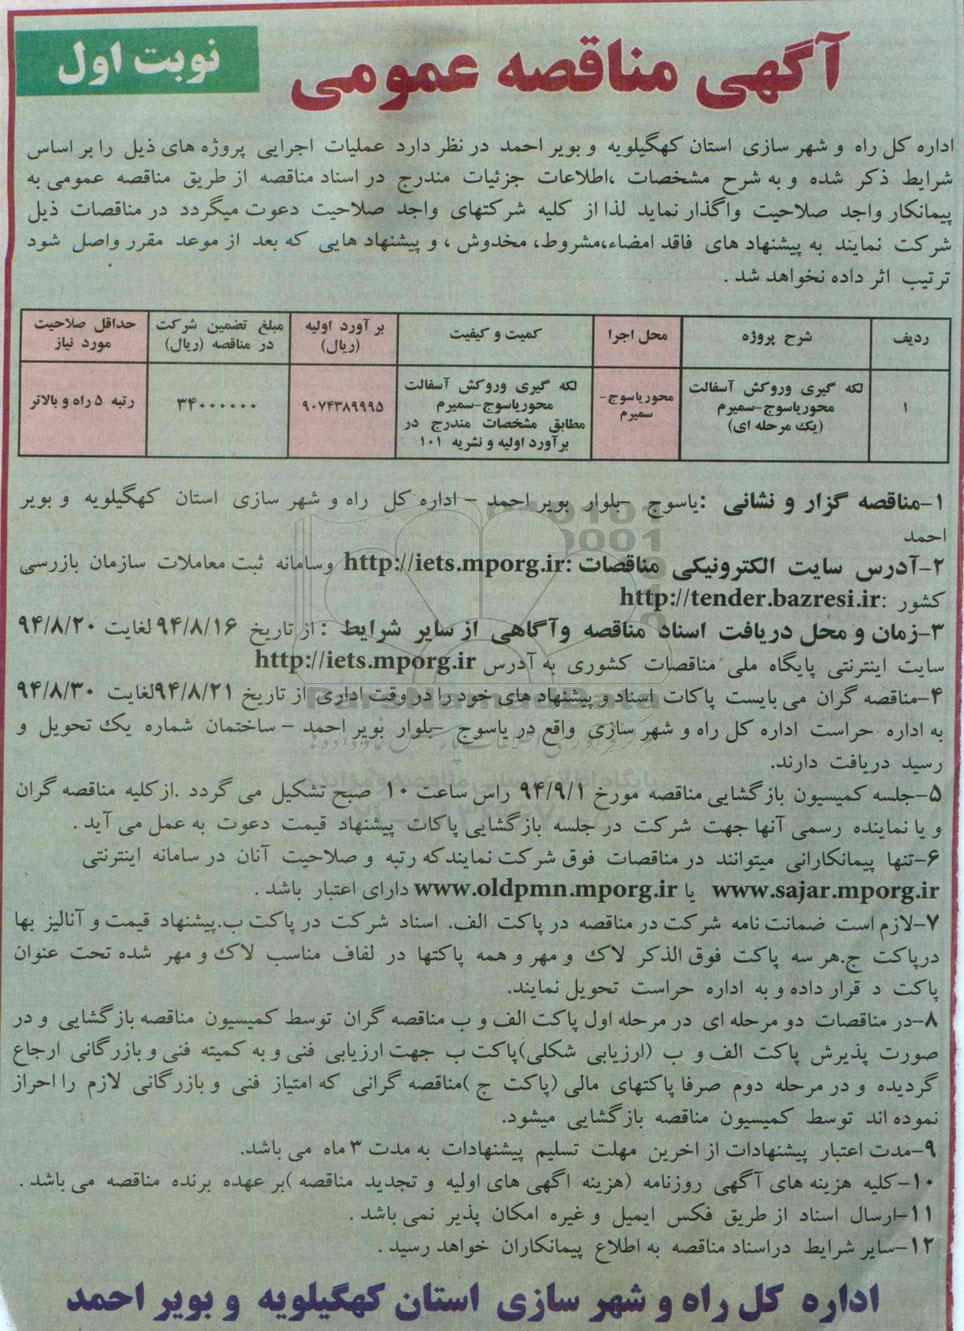 آگهی مناقصه عمومی
نوبت اول
اداره کل راه و شهر سازی استان کهگیلویه و بویر احمد در نظر دارد عملیات اجرایی پروژه های ذیل را بر اساس
شرایط ذکر شده و به شرح مشخصات ،اطلاعات جزئیات مندرج در اسناد مناقصه از طریق مناقصه عمومی به
پیمانکار واجد صلاحیت واگذار نماید لذا از کلیه شرکتهای واجد صلاحیت دعوت میگردد در مناقصات ذیل
شرکت نمایند به پیشنهاد های فاقد امضاء،مشروط، مخدوش ، و پیشنهاد هایی که بعد از موعد مقرر واصل شود
ترتیب اثر داده نخواهد شد .
ردیف
شرح پروژه
محل اجرا
کمیت و کیفیت
بر آورد اولیه
(ریال)
مبلغ تضمین شرکت
در مناقصه (ریال)
حداقل صلاحیت
مورد نیاز
۱
لکه گیری وروکش آسفالت
محوریاسوج-سمیرم
(یک مرحله ای)
محوریاسوج-
سمیرم
لکه گیری وروکش آسفالت
محوریاسوج-سمیرم
مطابق مشخصات مندرج در
برآورد اولیه و نشریه ۱۰۱
۹۰۷۴۳۸۹۹۹۵
۳۴۰۰۰۰۰۰۰
رتبه ۵ راه و بالاتر
۱-مناقصه گزار و نشانی :یاسوج -بلوار بویر احمد - اداره کل راه و شهر سازی استان کهگیلویه و بویر
احمد
۲-آدرس سایت الکترونیکی مناقصات :http://iets.mporg.ir وسامانه ثبت معاملات سازمان بازرسی
کشور :http://tender.bazresi.ir
۳-زمان و محل دریافت اسناد مناقصه وآگاهی از سایر شرایط :از تاریخ ۹۴/۸/۱۶ لغایت ۹۴/۸/۲۰
سایت اینترنتی پایگاه ملی مناقصات کشوری به آدرس http://iets.mporg.ir
۴-مناقصه گران می بایست پاکات اسناد و پیشنهاد های خود را در وقت اداری از تاریخ ۹۴/۸/۲۱لغایت ۹۴/۸/۳۰
به اداره حراست اداره کل راه و شهر سازی واقع در یاسوج -بلوار بویر احمد - ساختمان شماره یک تحویل و
رسید دریافت دارند.
۵-جلسه کمیسیون بازگشایی مناقصه مورخ ۹۴/۹/۱ راس ساعت ۱۰ صبح تشکیل می گردد .از کلیه مناقصه گران
و یا نماینده رسمی آنها جهت شرکت در جلسه بازگشایی پاکات پیشنهاد قیمت دعوت به عمل می آید .
۶-تنها پیمانکارانی میتوانند در مناقصات فوق شرکت نمایندکه رتبه و صلاحیت آنان در سامانه اینترنتی
www.sajar.mporg.ir یا www.oldpmn.mporg.ir دارای اعتبار باشد .
۷-لازم است ضمانت نامه شرکت در مناقصه در پاکت الف. اسناد شرکت در پاکت ب.پیشنهاد قیمت و آنالیز بها
درپاکت ج.هر سه پاکت فوق الذکر لاک و مهر و همه پاکتها در لفاف مناسب لاک و مهر شده تحت عنوان
پاکت د قرار داده و به اداره حراست تحویل نمایند.
۸-در مناقصات دو مرحله ای در مرحله اول پاکت الف و ب مناقصه گران توسط کمیسیون مناقصه بازگشایی و در
صورت پذیرش پاکت الف و ب (ارزیابی شکلی)پاکت ب جهت ارزیابی فنی و به کمیته فنی و بازرگانی ارجاع
گردیده و در مرحله دوم صرفا پاکتهای مالی (پاکت ج )مناقصه گرانی که امتیاز فنی و بازرگانی لازم را احراز
نموده اند توسط کمیسیون مناقصه بازگشایی میشود.
۹-مدت اعتبار پیشنهادات از اخرین مهلت تسلیم پیشنهادات به مدت ۳ ماه می باشد.
۱۰-کلیه هزینه های آگهی روزنامه (هزینه اگهی های اولیه و تجدید مناقصه )بر عهده برنده مناقصه می باشد .
۱۱-ارسال اسناد از طریق فکس ایمیل و غیره امکان پذیر نمی باشد .
۱۲-سایر شرایط دراسناد مناقصه به اطلاع پیمانکاران خواهد رسید .
اداره کل راه و شهر سازی استان کهگیلویه و بویر احمد